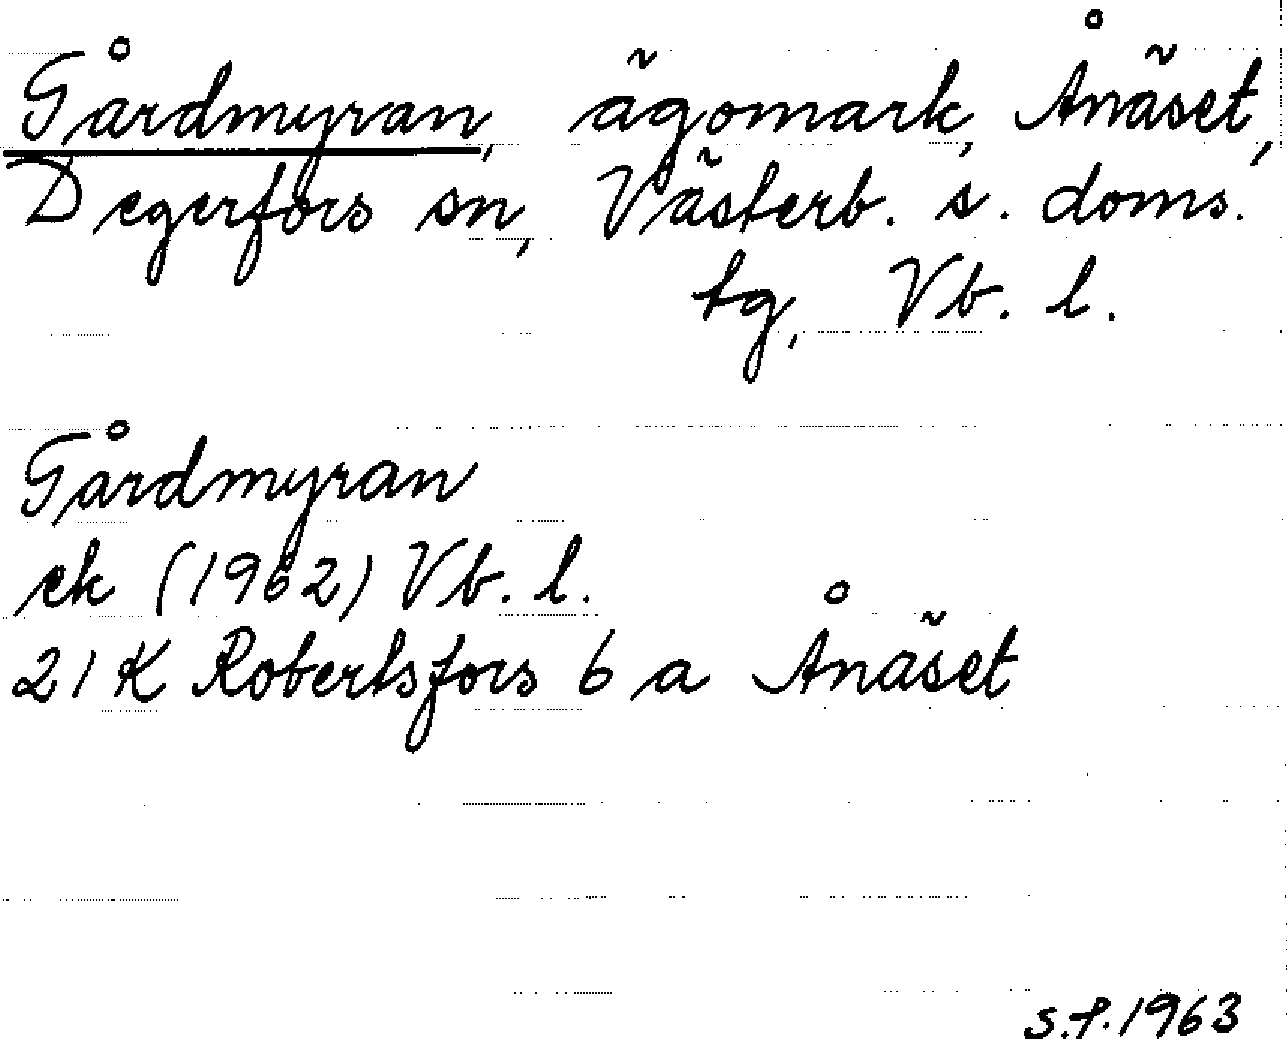 Gårdmyran, ägomark, Ånäset,
Degerfors sn, Västerb. s. doms.
tg, Vb. l.
Gårdmyran
ek (1962) Vb. l.
21 K Robertsfors 6 a Ånäset
s.f. 1963